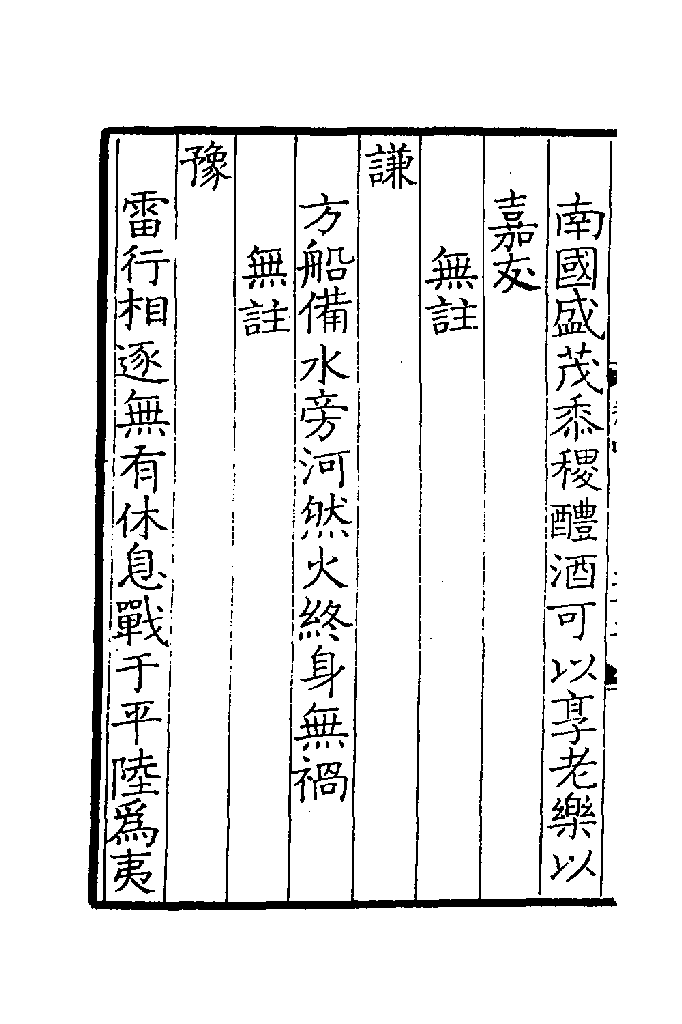 南國盛茂黍稷醴酒可以享老樂以
嘉友
無註
謙
方船備水旁河然火終身無禍
無註
豫
雷行相逐無有休息戰于平陸爲夷